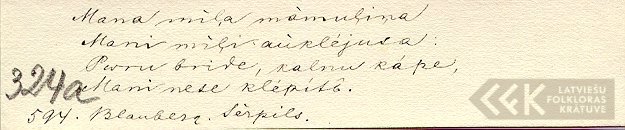 Mana mīļa māmuliņa
Mani mīļi aūklējusa:
Puru bride, kalnu kápe,
324a Mani nese klépitī.
594. Blauberg. Sērpils.
LATVIEŠU
FOLKLORAS
KRĀTUVE